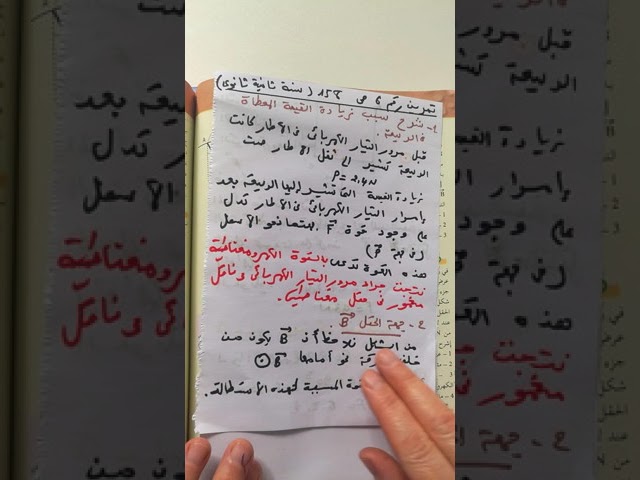 تمرين رقم 6 ص 158 (سنة ثانية ثانوي)
1- شرح سبب زيادة القيمة المعطاة
في الربيعة.
قبل مرور التيار الكهربائي في الاطار كانت
الربيعة تشير الى ثقل الاطار حيث
P = 2.4N
زيادة القيمة التي تشير إليها الربيعة بعد
بإمرار التيار الكهربائي في الاطار تدل
على وجود قوة F متجهة نحو الأسفل
(في جهة P)
هذه القوة تدعى بالقوة الكهرومغناطيسية
نتجت جراء مرور التيار الكهربائي في ناقل
مغمور في حقل مغناطيسي.
2- جهة الحقل B
من الشكل نلاحظ أن B يكون من
خلف نحو أمامها B
القوة المسببة لهذه الاستطالة.